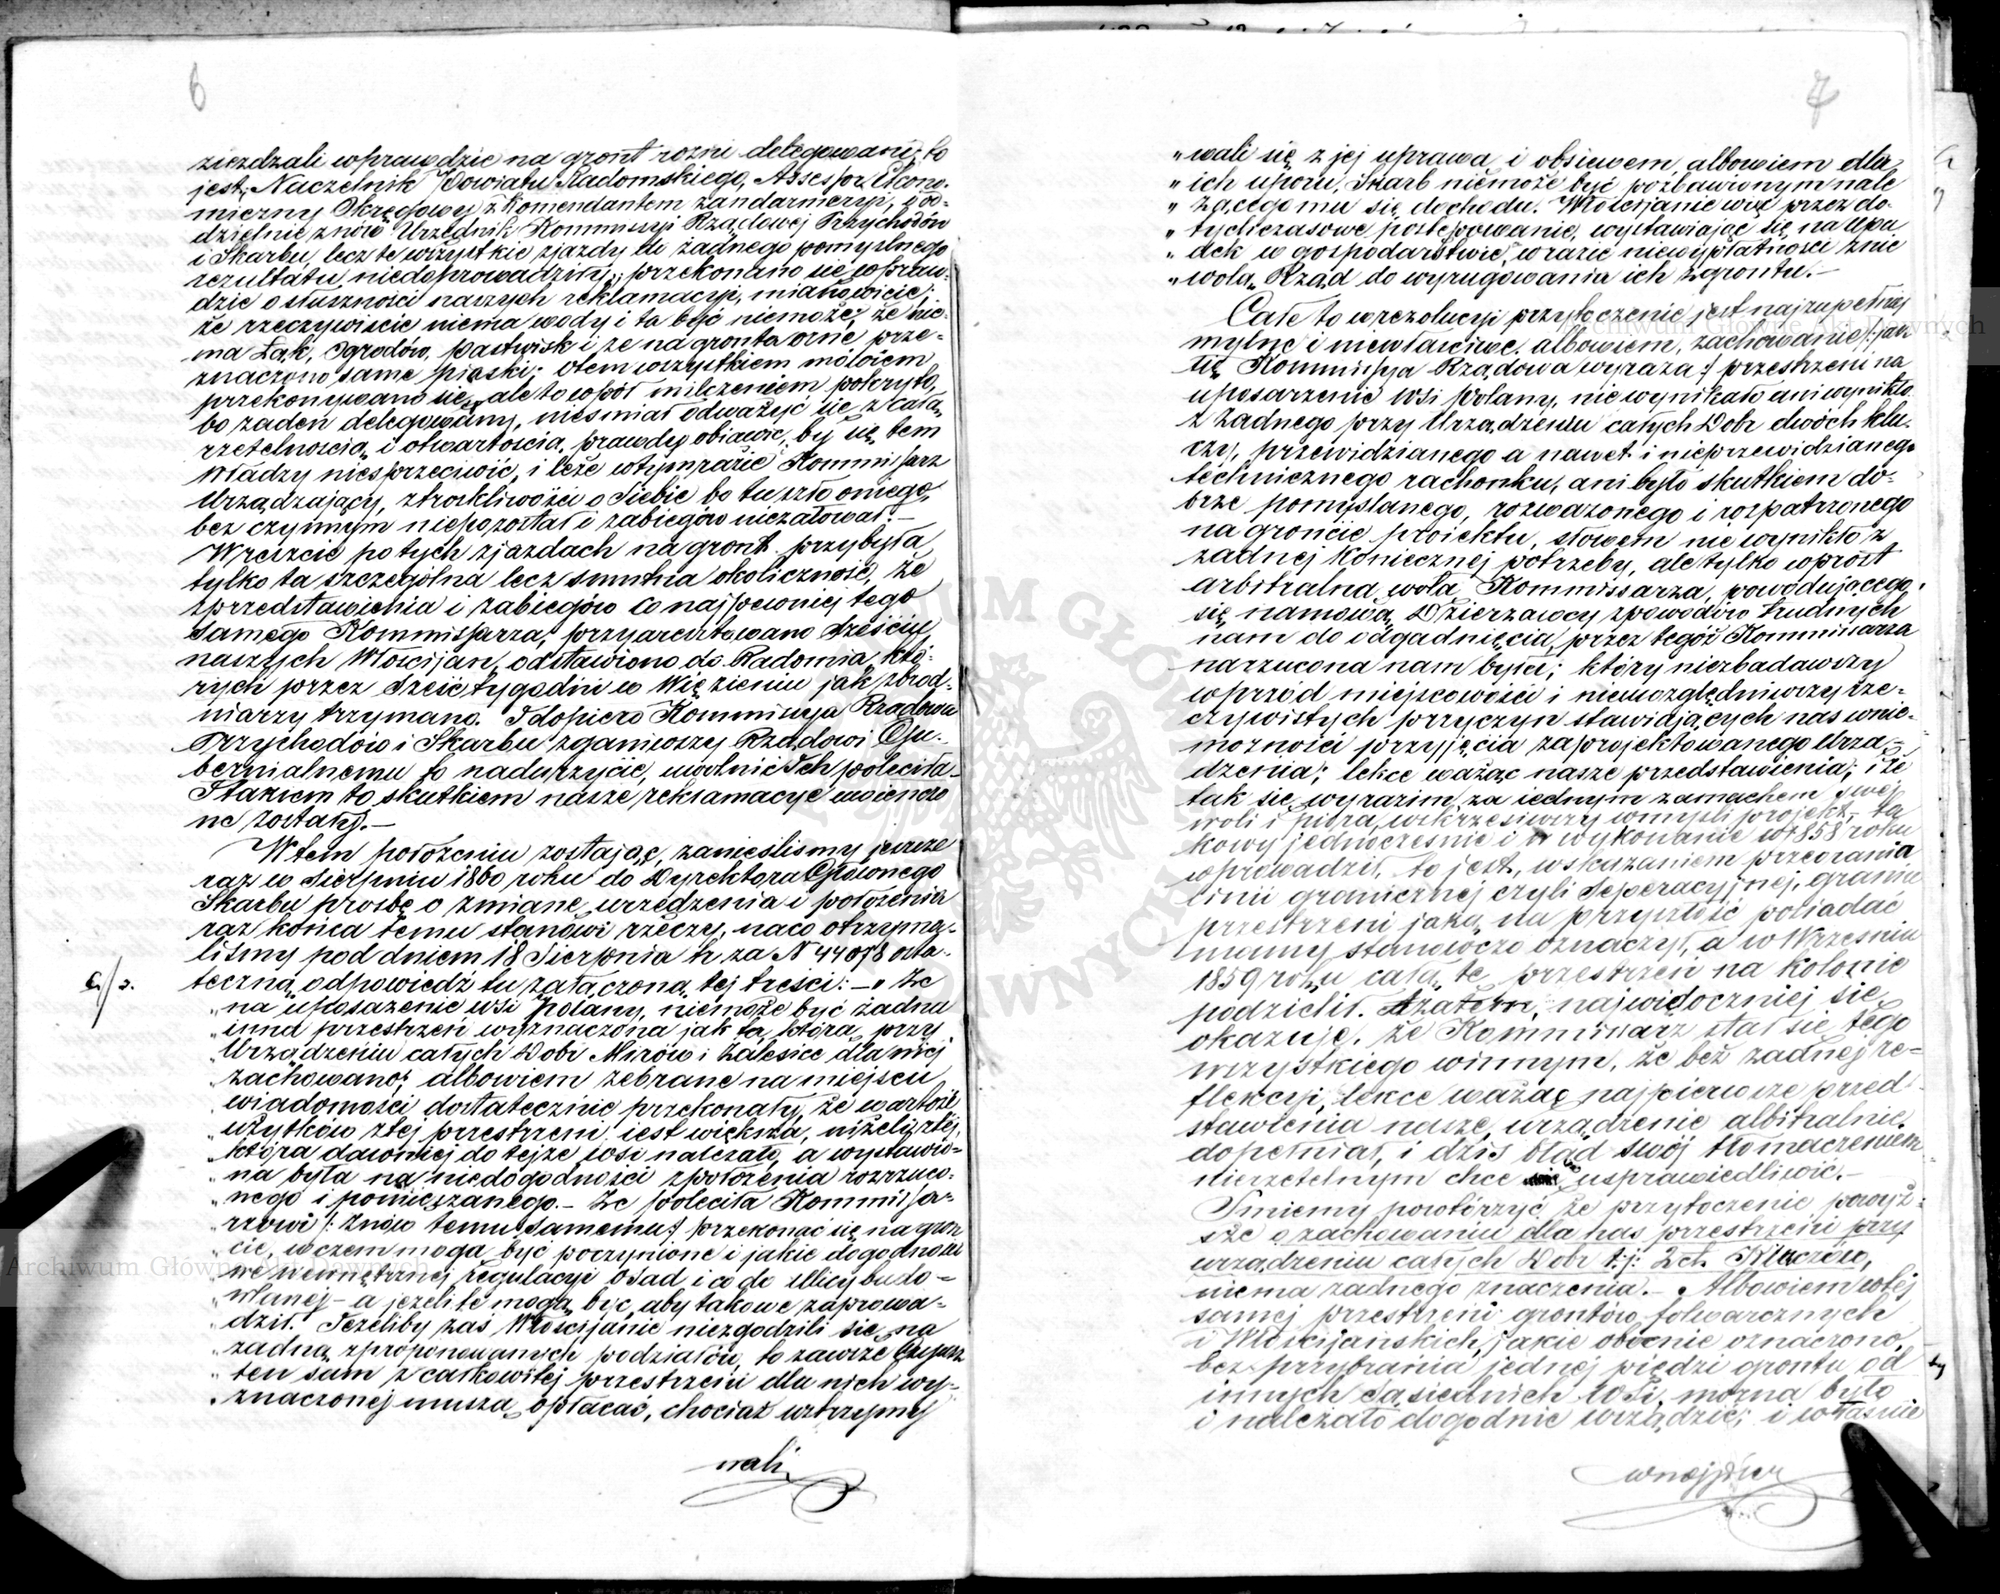 6
zieżdzali wprawdzie na gront rożni delegowani; to
jest; Naczelnik Powiatu Radomskiego, Assessor Ekono-
miczny Okręgowy z Komendantem Żandarmeryi, i od-
dzielnie znów Urzędnik Kommissyi Rządowej Przychodów
i Skarbu, lecz te wszystkie zjazdy do żadnego pomyślnego
rezultatu niedoprowadziły; przekonano się wpraw-
dzie o słuszności naszych reklamacyi, mianowicie;
że rzeczywiście niema wody i ta być niemoże; że nie-
ma Łąk, Ogrodów, pastwisk i że na gronta orne prze-
znaczono same piaski; otem wszystkiem mówiem
przekonywano się, ale to wpół milczeniem pokryto,
bo żaden delegowany, nieśmiał odważyć się z całą
rzetelnością i otwartością, prawdy obiawić, by się tem
Władzy niesprzeciwić, i leże wtym razie Kommissarz
Urządzający, ztroskliwości o Siebie bo tu szło oniego,
bez czynnym niepozostał i zabiegów nieżałował.—
Wreszcie po tych zjazdach na gront przybyła
tylko ta szczególna lecz smutna okoliczność, że
zprzedstawienia i zabiegów co najpewniej tego
samego Kommissarza, przyaresztowano sześciu
naszych Włościjan, odstawiono do Radomia, któ-
rych przez sześć tygodni w Więzieniu jak zbrod-
niarzy trzymano. I dopiero Kommissya Rządowa
Przychodów i Skarbu zganiwszy Rządowi Gu-
bernialnemu to nadużycie, uwolnić Ich poleciła
I takiem to skutkiem nasze reklamacye uwieńczo
ne zostały.—
W tem położeniu zostając, zanieśliśmy jeszcze
raz w Sierpniu 1860 roku do Dyrektora Głównego
Skarbu prośbę o zmianę urzędzenia i położenia
raz końca temu stanowi rzeczy, naco otrzyma-
liśmy pod dniem 18 Sierpnia tr za N 44078 osta-
teczną odpowiedź tu załączoną tej treści:—„ Że
„na uposażenie wsi Polany, niemoże być żadna
„inna przestrzeń wyznaczona jak ta, która, przy
„Urządzeniu całych Dóbr Mirów i Zalesice dla niej
„zachowano; albowiem zebrane na miejscu
„wiadomości dostatecznie przekonały, że wartość
„użytków ztej przestrzeni jest większa, niżeli ztej,
„która dawniej do tejże wsi należało, a wystawio-
„na była na niedogodności zpołożenia rozrzuco-
„nego i pomięszanego.— Że poleciła Kommissa-
„rzowi /: znów temu samemu :/ przekonać się na gron
„cie, wczem mogą być poczynione i jakie dogodności
„we wewnętrznej regulacyi osad i co do ulicy budo-
„wlanej— a jeżeli te mogą być, aby takowe zaprowa-
„dził. Jeżeliby zaś Włościjanie niezgodzili się na
„żadną zproponowanych podziałów, to zawsze Czynsz
„ten sam z całkowitej przestrzeni dla nich wy-
„znaczonej muszą opłacać, chociaż wstrzymy
wali
7
„wali się z jej uprawą i obsiewem, albowiem dla
„ich uporu, Skarb niemoże być pozbawionym nale
„żącego mu się dochodu. Włościjanie więc przez do-
„tychczasowe postępowanie, wystawiając się na upa
„dek w gospodarstwie, w razie niewypłatności znie
„wolą Rząd do wyrugowania ich zgrontu.—
Całe to w rezolucyi przytoczenie jest najzupełniej
mylne i niewłaściwe, albowiem, zachowanie /: jak
tu Kommissya Rządowa wyraża :/ przestrzeni na
uposarzenie wsi Polany, nie wynikało ani wynikło
z żadnego przy Urządzeniu całych Dóbr dwóch klu-
czy, przewidzianego a nawet i nieprzewidzianego
technicznego rachonku, ani było skutkiem do-
brze pomyślanego, rozważonego i rozpatrzonego
na grońcie projektu, słowem nie wynikło z
żadnej koniecznej potrzeby, ale tylko wprost
arbitralną wolą Kommissarza, powodującego
się namową Dzierżawcy zpowodów trudnych
nam do odgadnięcia, przez tegoż Kommissarza
narzucona nam była; który niezbadawszy
wprzód miejscowości i nieuwzględniwszy rze-
czywistych przyczyn stawiających nas wnie-
możności przyjęcia zaprojektowanego Urzą-
dzenia; lekce ważąc nasze przedstawienia; i że
tak się wyrazim za jednym zamachem swej
woli i pióra, wskrzesiwszy wmyśli projekt, ta
kowy jednocześnie i w wykonanie w 1858 roku
wprowadził, to jest, wskazaniem przeorania
linii granicznej czyli Seperacyjnej, granice
przestrzeni jaką na przyszłość posiadać
mamy stanowczo oznaczył, a w Wrześniu
1859 roku całą tę przestrzeń na kolonie
podzielił. A zatem, najwidoczniej się
okazuje, że Kommissarz stał się tego
wszystkiego winnym, że bez żadnej re-
flekcyi, lekce ważąc najpierwsze przed-
stawienia nasze, urządzenie albitralnie
dopełniał, i dziś błąd swój tłomaczeniem
nierzetelnym chce usprawiedliwić.—
Śmiemy powtórzyć że przytoczenie powyż-
sze o zachowaniu dla nas przestrzeni przy
urządzeniu całych Dóbr t:j: 2ch Kluczów,
niema żadnego znaczenia.— Albowiem wtej
samej przestrzeni grontów folwarcznych
i Włościjańskich, jakie obecnie oznaczono,
bez przybrania jednej piędzi grontu od
innych sąsiednich wsi, można było
i należało dogodnie urządzić; i właśnie